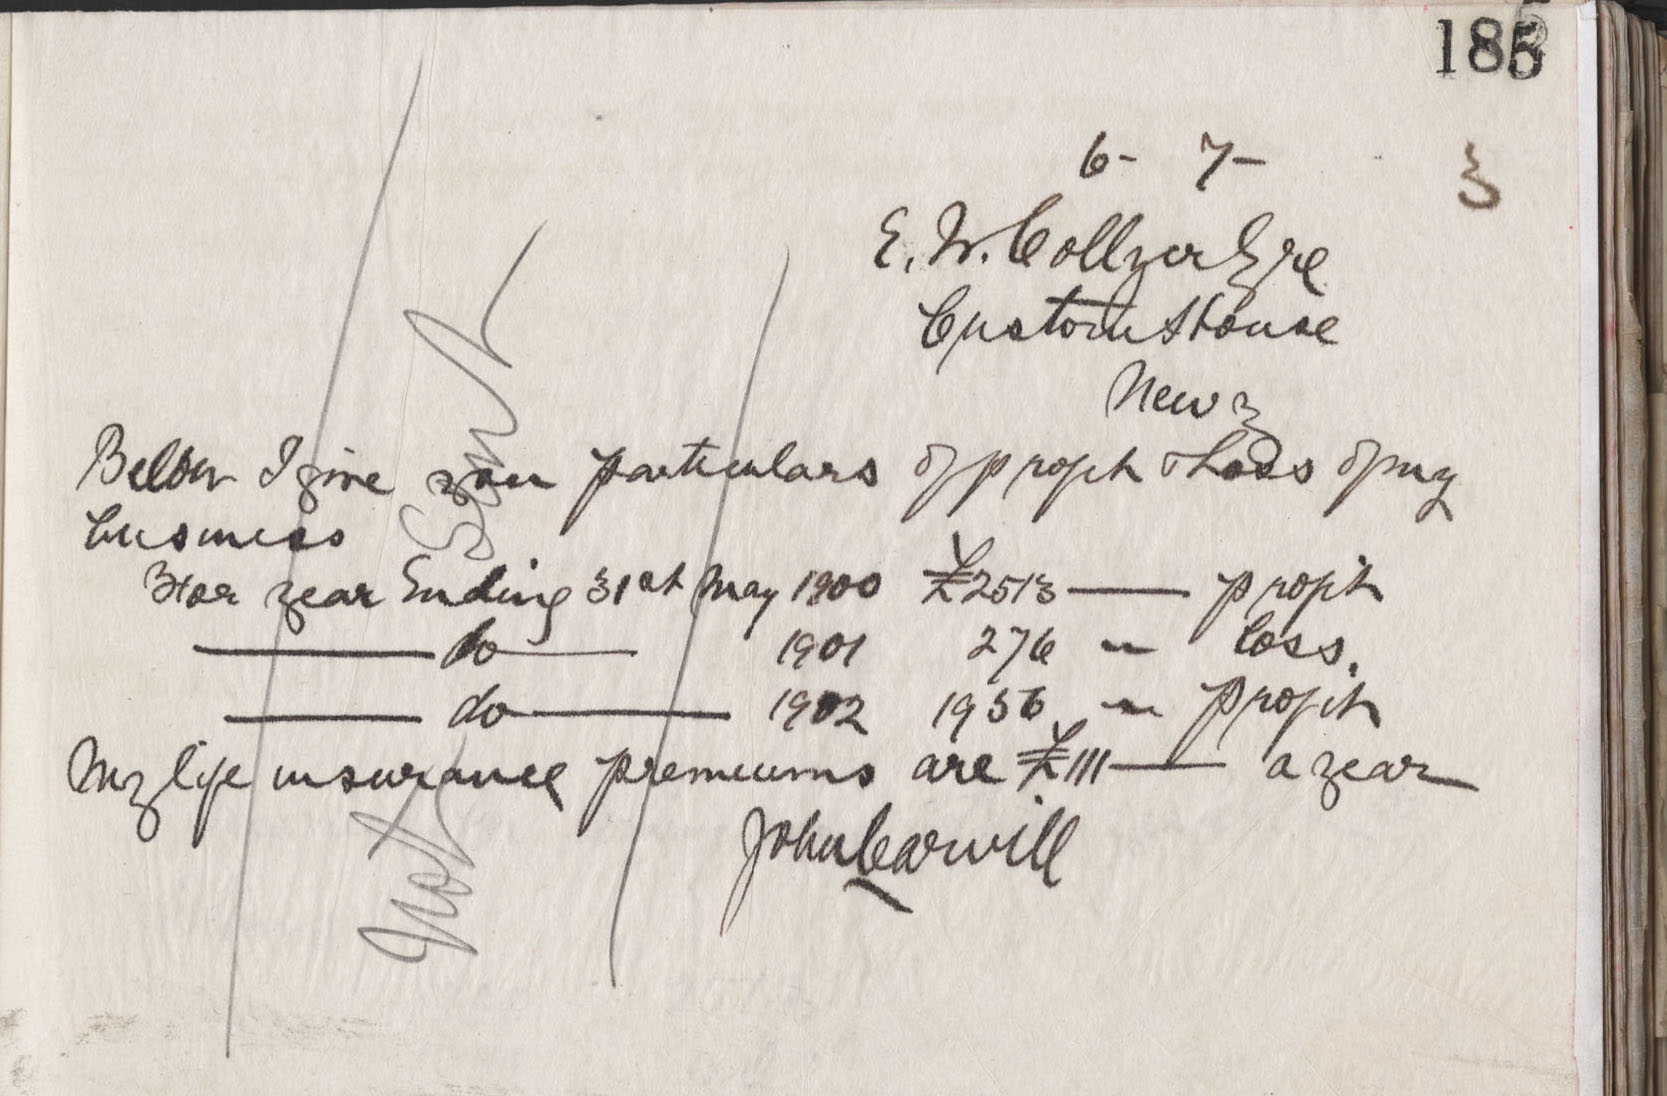 185
6- 7- 3
E. W. Collyer Esqre
Custom House
Newry
Below I give you particulars of profit & Loss of my
business
For year Ending 31st May 1900 £2513 — profit
— do — 1901 276 — loss.
— do — 1902 1956 — profit
My life insurance premiums are £111 — a year
John Carvill
Not Sent